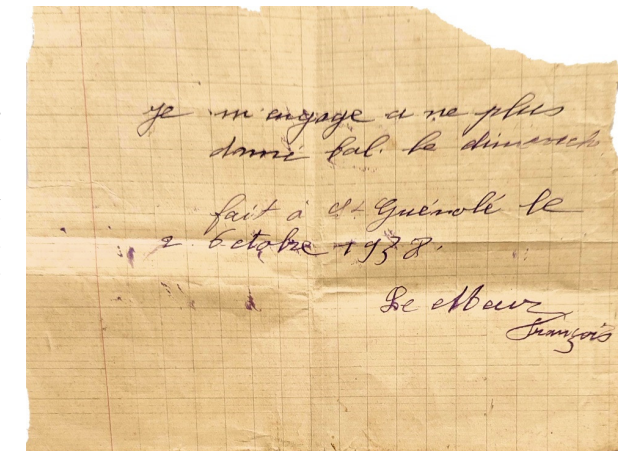 je m'engage a ne plus
donné bal. le dimanche
fait à St Guénolé le
2 Octobre 1938.
Le Meur
François